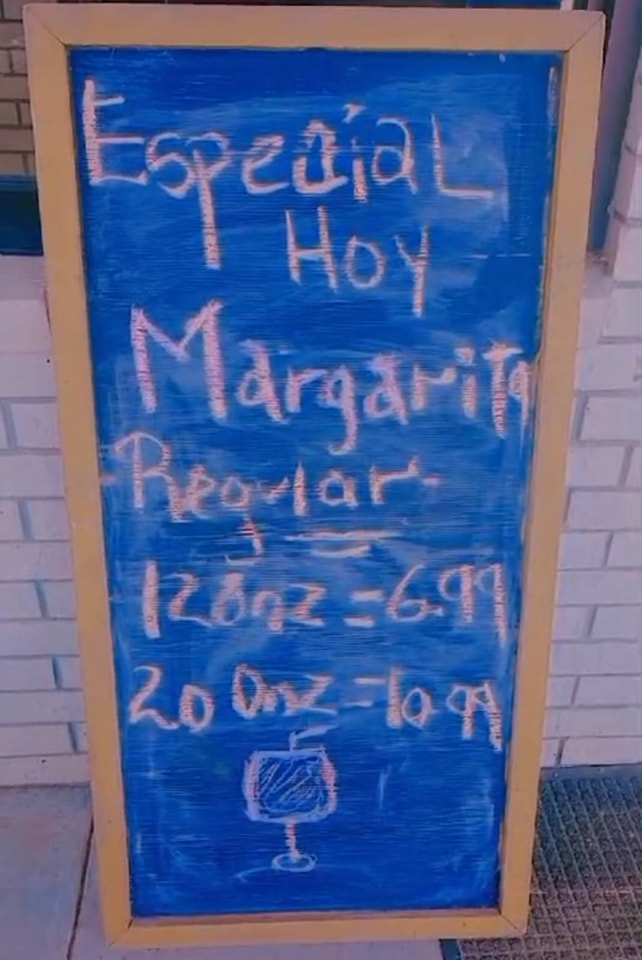 Especial
Hoy
Margarita
-Regular-
12 Onz = 6.99
20 Onz = 10.99